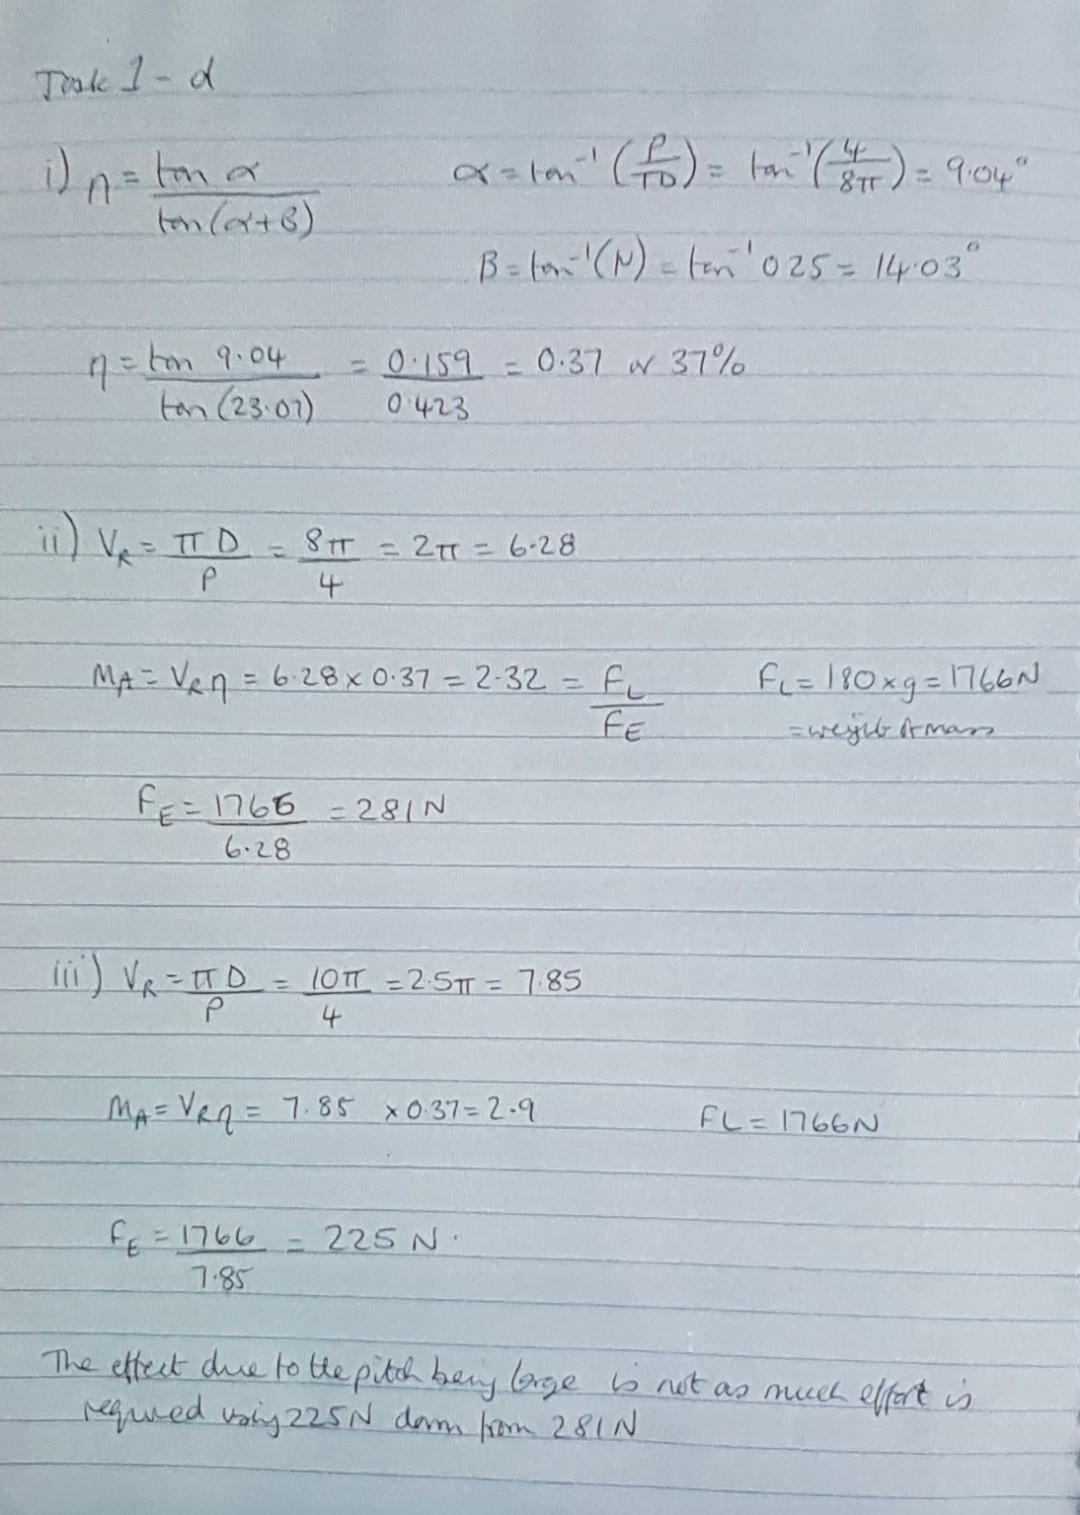 Task 1 - d
i) η = tan α / tan(α+B)    α = tan⁻¹ (P/πD) = tan⁻¹ (4/8π) = 9.04°
B = tan⁻¹(N) = tan⁻¹ 0.25 = 14.03°
η = tan 9.04 / tan (23.07) = 0.159 / 0.423 = 0.37 or 37%
ii) VR = π D / P = 8π / 4 = 2π = 6.28
MA = VRη = 6.28 x 0.37 = 2.32 = FL / FE    FL = 180 x g = 1766N
= weight of mass
FE = 1766 / 6.28 = 281N
iii) VR = π D / P = 10π / 4 = 2.5π = 7.85
MA = VRη = 7.85 x 0.37 = 2.9    FL = 1766N
FE = 1766 / 7.85 = 225 N.
The effect due to the pitch being large is not as much effort is
required using 225N down from 281N